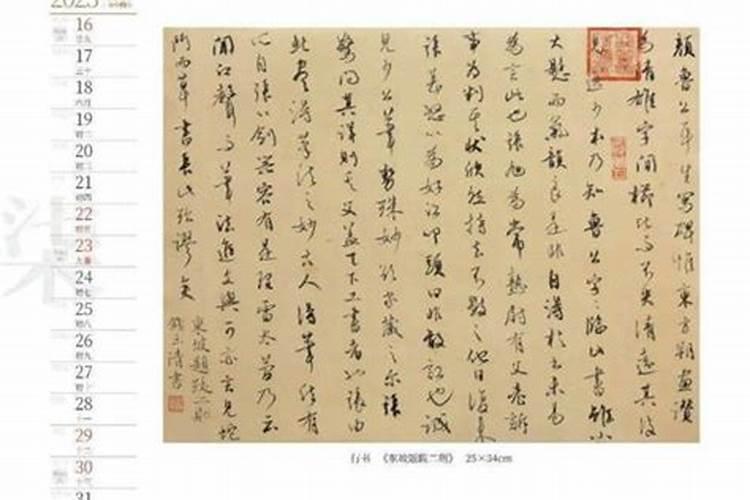 2023
16
17
18
19
20
21
22
23
24
25
26
27
28
29
30
31
顏魯公平生寫碑惟東方朔畫讚
為清雄字間櫛比而不失清遠其後
見逸少本乃知魯公字字臨此書雖小
大懸而氣韻良是非自得於書未易
為言此也張旭為常熟尉有父老訴
事為判其狀欣然持去不數 他日復来
張甚怒以為好訟叩頭曰非敢訟也誠
見少公筆勢殊妙欲家藏之尔張
驚問其詳則其父蓋天下工書者也張由
此盡得筆法之妙古人得筆法有
所自張以劍器容有是理雷太簡乃云
聞江聲而筆法進文與可亦言見蛇
鬥而草書長此殆謬矣
東坡題跋二則
錢玉清書
行书 《东坡题跋二则》 25×34cm